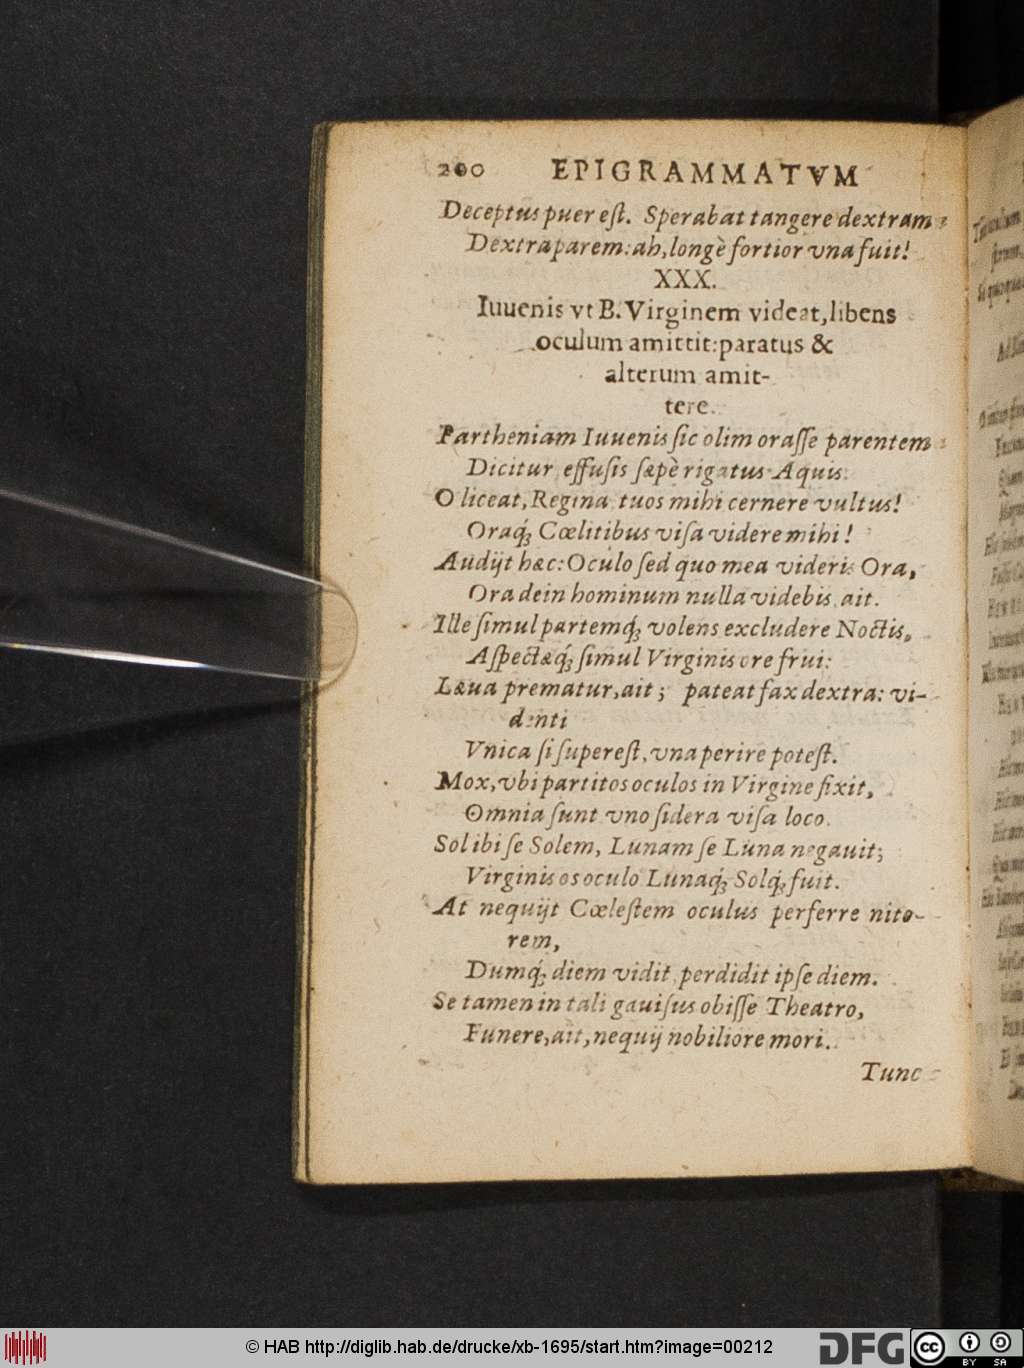 200 EPIGRAMMATVM
Deceptus puer eſt. Sperabat tangere dextram:
Dextra parem: ah, longè fortior vna fuit!
XXX.
Iuuenis vt B. Virginem videat, libens
oculum amittit: paratus &
alterum amit-
tere.
Partheniam Iuuenis ſic olim oraſſe parentem
Dicitur, effuſis ſæpè rigatus Aquis:
O liceat, Regina, tuos mihi cernere vultus!
Oraq́ꝫ Cœlitibus viſa videre mihi!
Audijt hæc: Oculo ſed quo mea videris Ora,
Ora dein hominum nulla videbis, ait.
Ille ſimul partemq́ꝫ volens excludere Noctis,
Aſpectæq́ꝫ ſimul Virginis ore frui:
Læua prematur, ait; pateat fax dextra: vi-
denti
Vnica ſi ſupereſt, vna perire poteſt.
Mox, vbi partitos oculos in Virgine fixit,
Omnia ſunt vno ſidera viſa loco.
Sol ibi ſe Solem, Lunam ſe Luna negauit;
Virginis os oculo Lunaq́ꝫ Solq́ꝫ fuit.
At nequijt Cœleſtem oculus perferre nito-
rem,
Dumq́ꝫ diem vidit, perdidit ipſe diem.
Se tamen in tali gauiſus obiſſe Theatro,
Funere, ait, nequij nobiliore mori.
Tunc
© HAB http://diglib.hab.de/drucke/xb-1695/start.htm?image=00212
DFG
cc BY SA